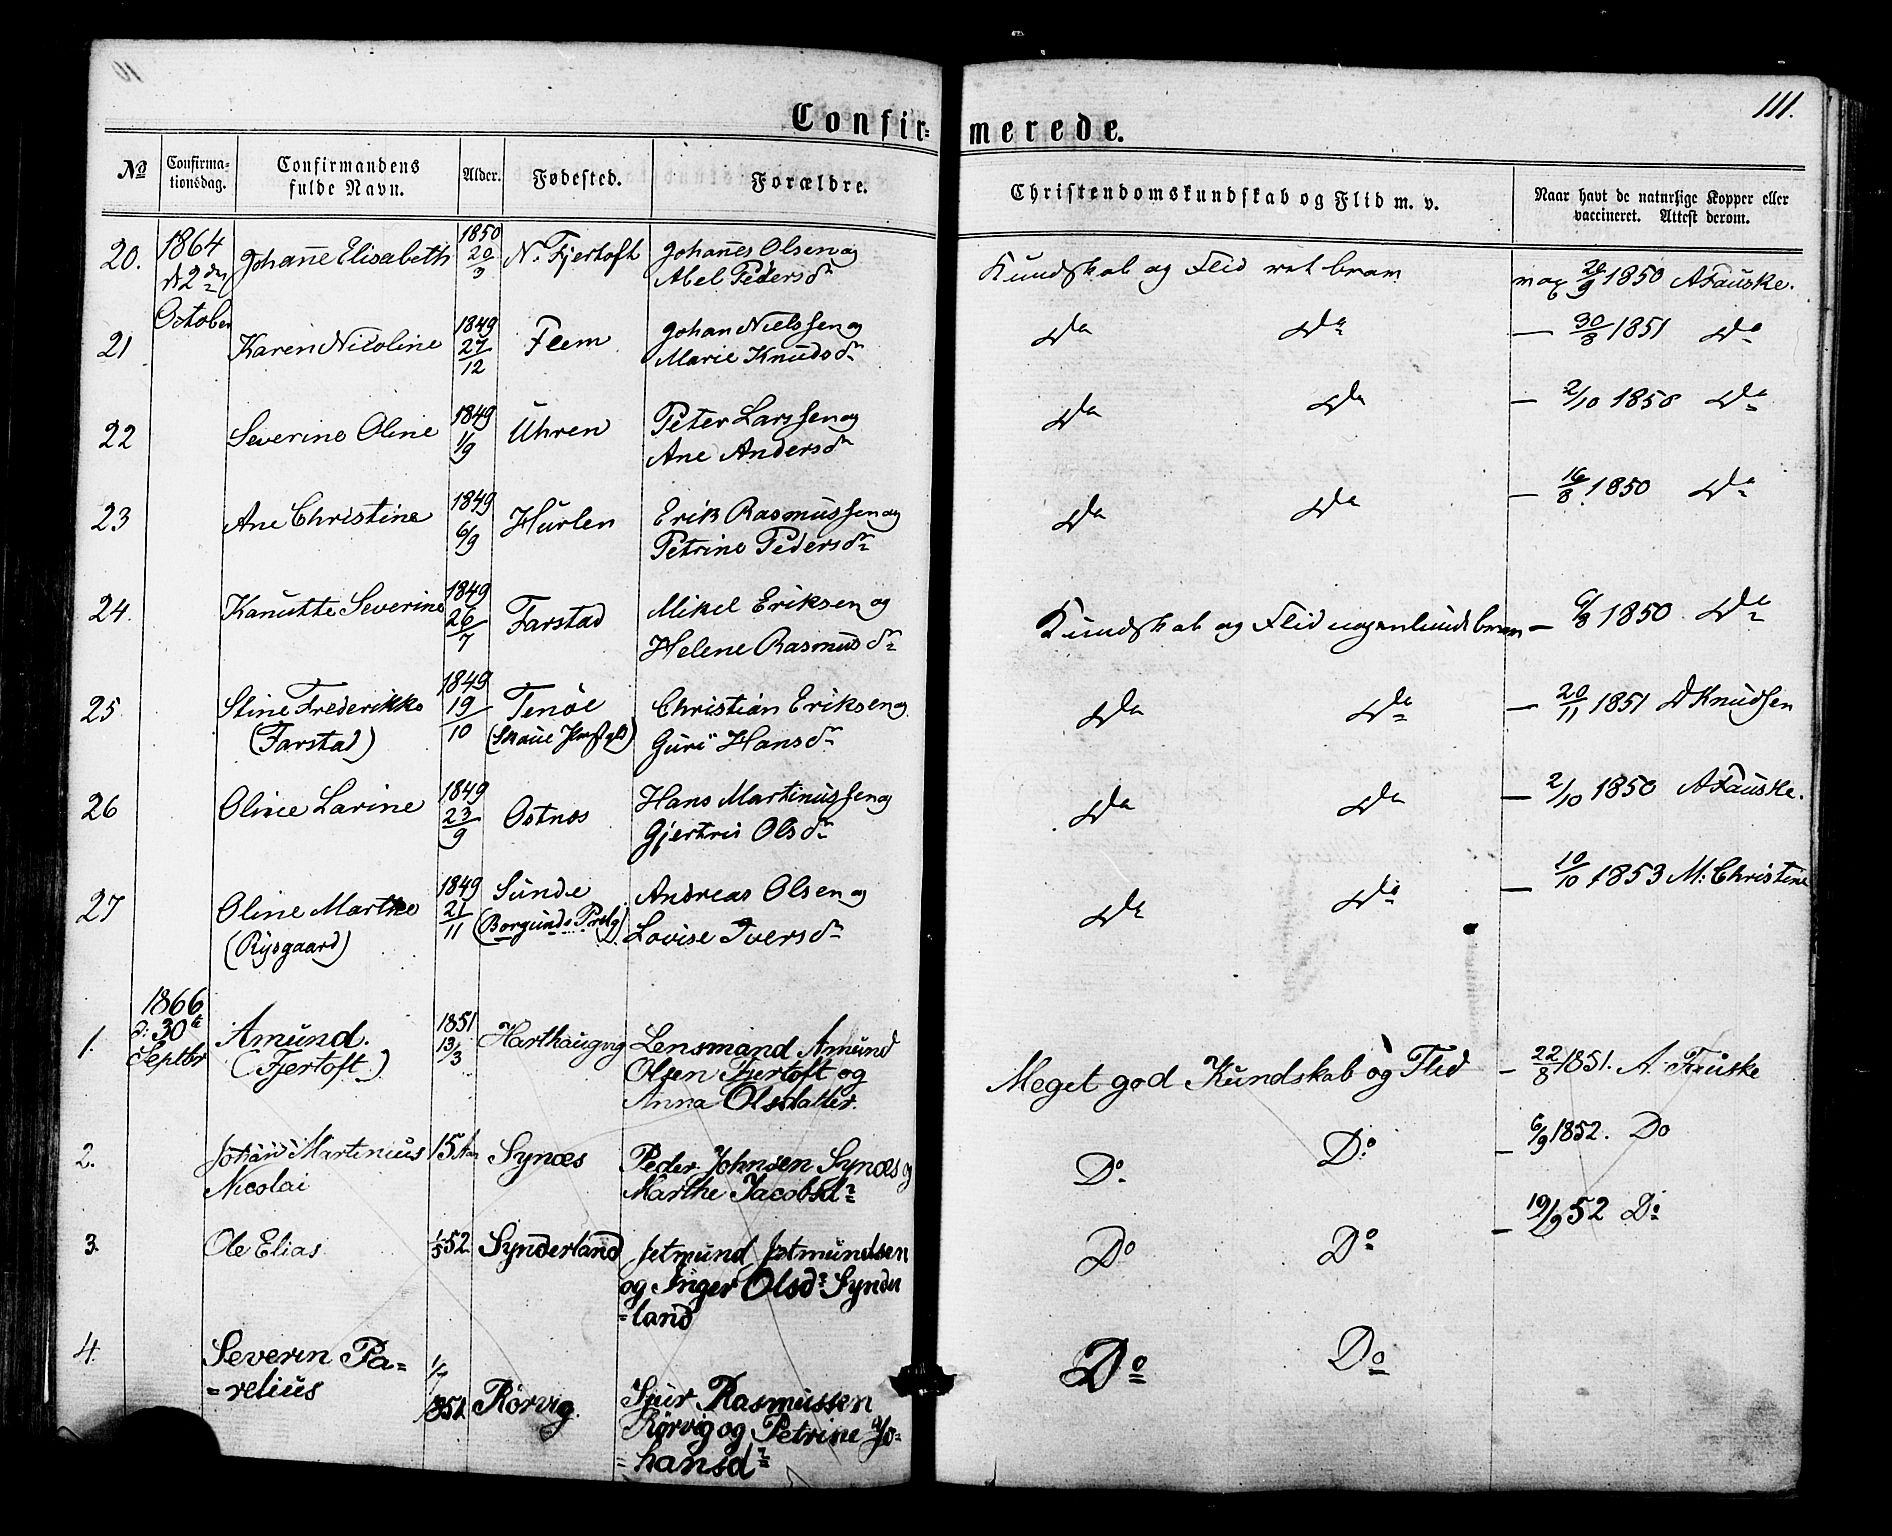 111.
Confir= merede.
No
Confirma-
tionsdag.
Confirmandens
fulde Navn.
Alder.
Fødested.
Forældre.
Christendomskundskab og Flid m. v.
Naar havt de naturlige Kopper eller
vaccineret. Attest derom.
20. 1864 Johanne Elisabeth 1850 20/3 N. Fjertoft Johannes Olsen og
d 2den
October
Abel Pedersdr
Kundskab og Flid ret bram
vac 20/9 1850 AFauske.
21 Karen Nicoline 1849 27/12 Flem Johan Nielssen og
Marie Knudsdr
Do Do — 30/8 1851 Do
22 Severine Oline 1849 1/9 Uhren Peter Larssen og
Ane Andersdr
Do Do — 2/10 1850 Do
23 Ane Christine 1849 6/9 Hurlen Erik Rasmussen og
Petrine Pedersdr
Do Do — 16/8 1850 Do
24. Kanutte Severine 1849 26/7 Farstad Mikel Eriksen og
Helene Rasmusdr
Kundskab og Flid nogenlunde bram — 6/8 1850 Do
25 Stine Frederikke 1849 19/10 Tenöe Christian Eriksen og
(Farstad) Guri Hansdr
Do Do — 20/11 1851 D Knudsen
26 Oline Larine 1849 23/9 Ostnæs Hans Martinussen og
Gjertrud Olsdr
Do Do — 2/10 1850 AFauske.
27 Oline Marthe 1849 21/11 Sunde Andreas Olsen og
(Rysgaard) (Borgunds Prslg) Lovise Iversdr
Do Do — 10/10 1853 M: Christine
1. 1866 Amund. 1851 13/3 Harthaugvig Lensmand Amund
d: 30te
Septbr
(Fjertoft) Olsen Fjertoft og
Anna Olsdatter.
Meget god Kundskab og Flid — 22/8 1851. A. Fauske
2. Johan Martinius 15 Aar Synæs Peder Johnsen Synæs og
Nicolai Marthe Jacobsdr
Do Do — 6/9 1852. Do
3. Ole Elias 1/5 52 Synderland Jetmund Jetmundsen
og Inger Olsdr Synder
=land
Do Do — 10/9 52 Do
4. Severin Pa= 1/7 1851 Rörvig Sjur Rasmussen
=relius Rörvig og Petrine Jo=
=hansdr
Do Do